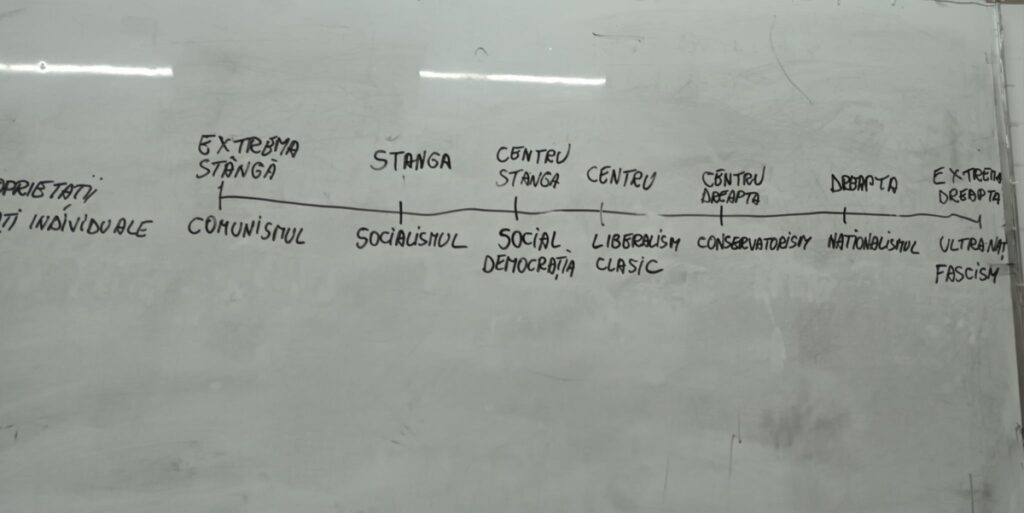 EXTREMA
STÂNGĂ
STANGA
CENTRU
STANGA
CENTRU
CENTRU
DREAPTA
DREAPTA
EXTREMA
DREAPTA
OPRIETATII
ȚI INDIVIDUALE
COMUNISMUL
SOCIALISMUL
SOCIAL
DEMOCRAȚIA
LIBERALISM
CLASIC
CONSERVATORISM
NATIONALISMUL
ULTRANAȚ
FASCISM